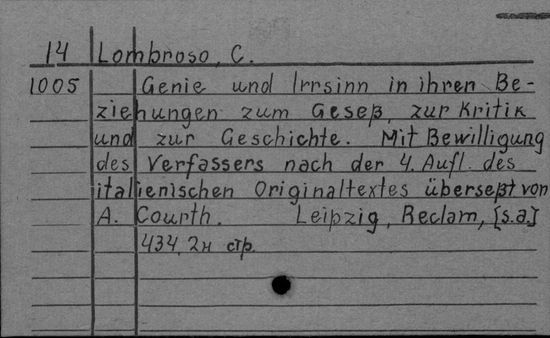 14 Lombroso, C.
1005 Genie und Irrsinn in ihren Be-
ziehungen zum Geseß, zur Kritik
und zur Geschichte. Mit Bewilligung
des Verfassers nach der 4. Aufl. des
italienischen Originaltextes überseßt von
A. Courth. Leipzig, Reclam, [s.a.]
434, 2н стр.